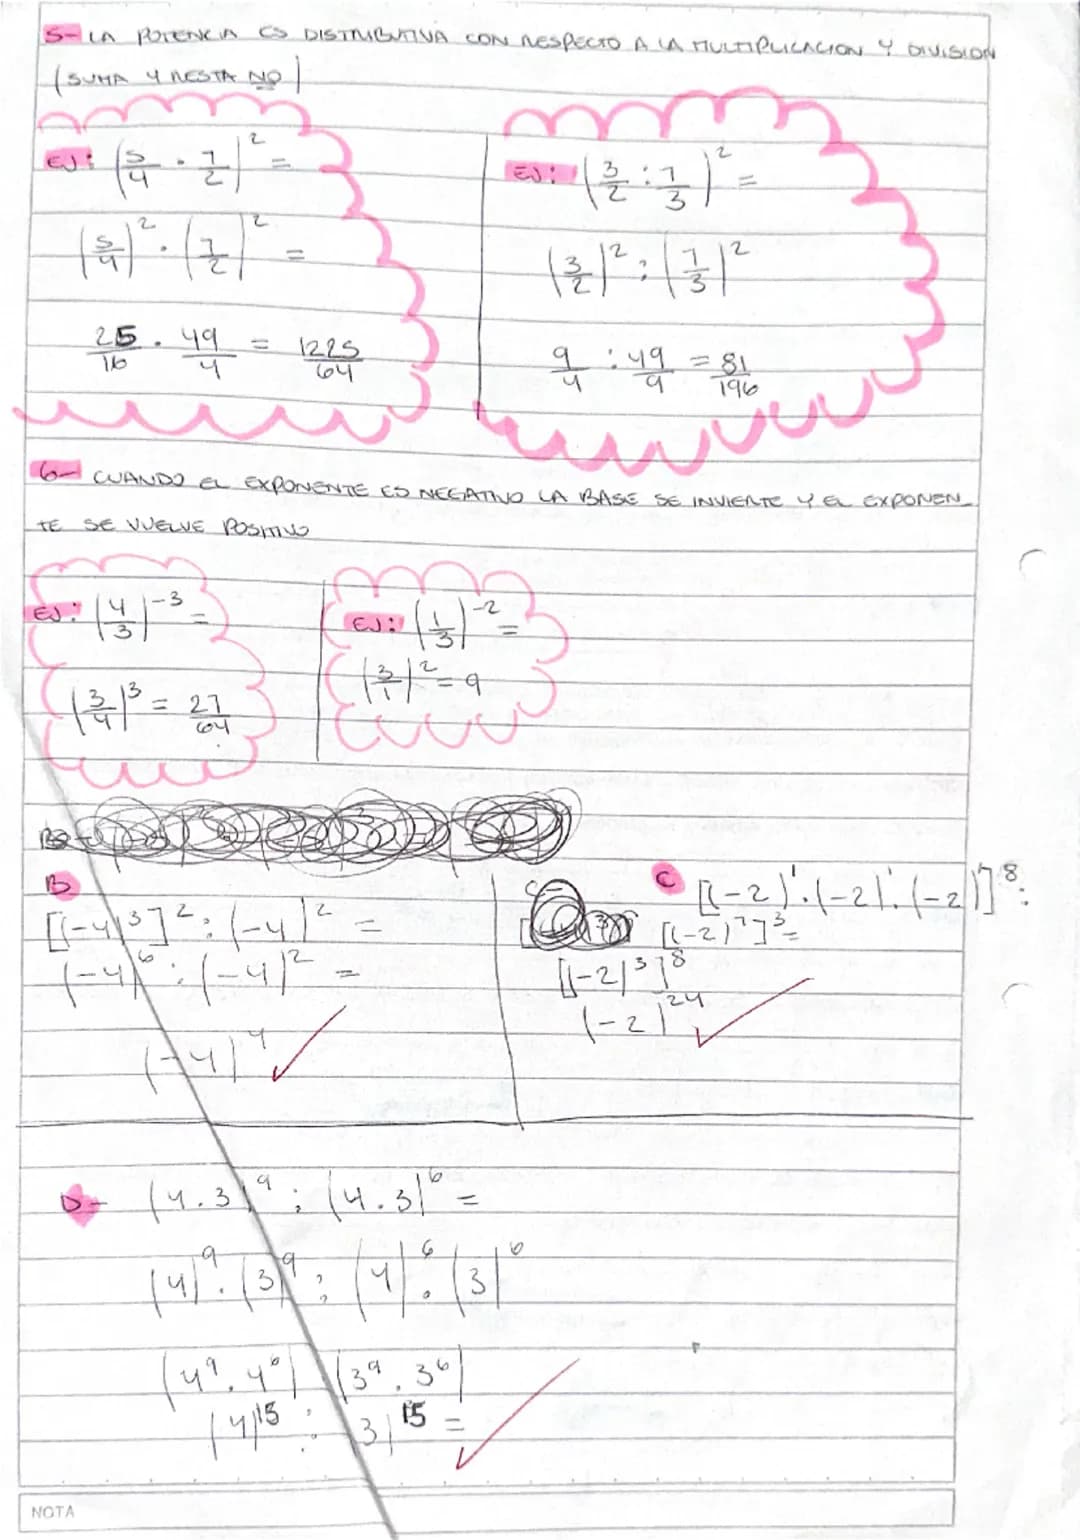 5- LA POTENCIA ES DISTRIBUTIVA CON RESPECTO A LA MULTIPLICACION Y DIVISION
(SUMA Y RESTA NO)
EJ: (5/4 · 7/2)² =
(5/4)² · (7/2)² =
25/16 · 49/4 = 1225/64
EJ: (3/2 : 7/3)² =
(3/2)² : (7/3)²
9/4 : 49/9 = 81/196
6- CUANDO EL EXPONENTE ES NEGATIVO LA BASE SE INVIERTE Y EL EXPONEN_
TE SE VUELVE POSITIVO
EJ: (4/3)⁻³ =
(3/4)³ = 27/64
EJ: (1/3)⁻² =
(3/1)² = 9
B
[(-4)³]² : (-4)² =
(-4)⁶ : (-4)² =
(-4)⁴
C [(-2)¹·(-2)·(-2)]⁸:
[(-2)⁷]³=
[(-2)³]⁸
(-2)²⁴
D- (4.3)⁹ : (4.3)⁶ =
(4)⁹ · (3)⁹ : (4)⁶ · (3)⁶
(4⁹.4⁶) (3⁹.3⁶)
(4)¹⁵ : 3)¹⁵ =
NOTA